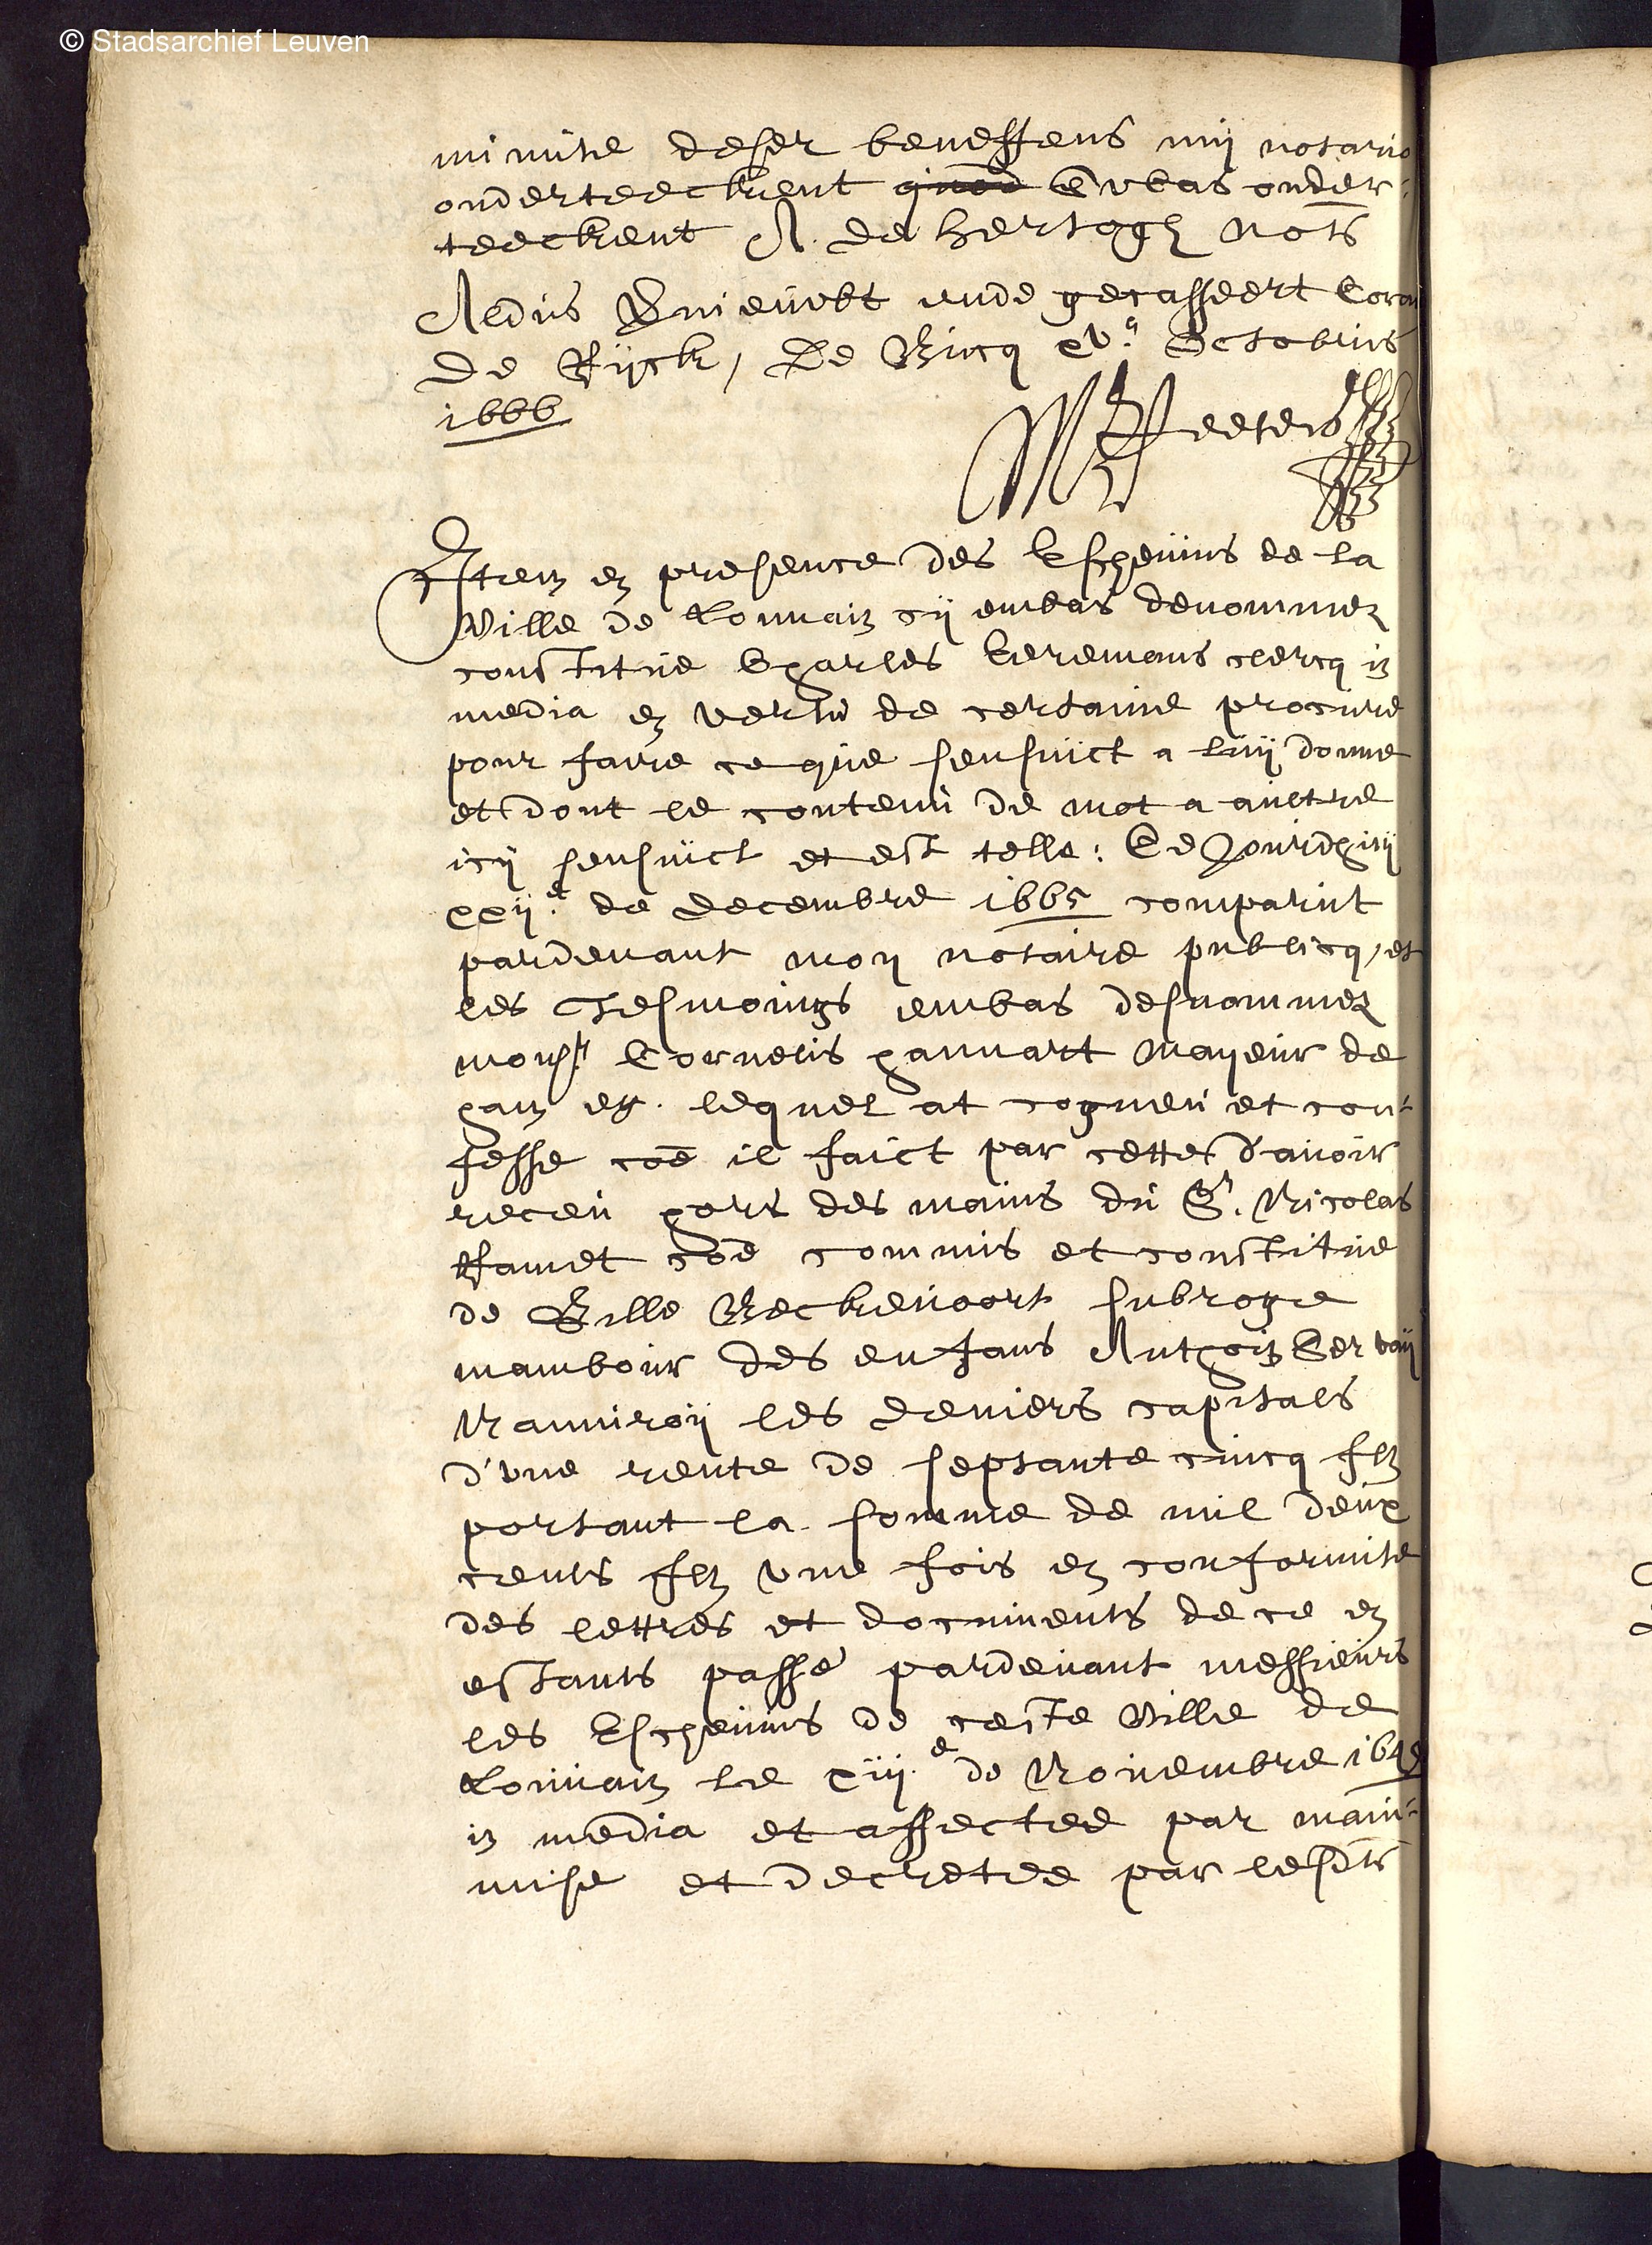 © Stadsarchief Leuven
minute deser beneffens mij notario
onderteeckent quod Enbas onder¬
teeckent A. de Hertogh nots
Aldus vernieuwt ende gecasseert Coram
de Rijck, De Bucq xv.a Octobris
1666
Peeters
Item en presence des Eschevins de la
Ville de Louvain cij embas denommez
constitue Charles Ceremans clercq in
media en vertu de certaine procure
pour faire ce que sensuict a luij donne
et dont le contenu de mot a aultre
icij sensuict et est telle: Ce Jourdhuij
xxij.e de Decembre 1665 comparut
pardevant moij notaire publicq, et
les Tesmoings embas desnommez
monsr. Cornelis hannart Mayeur de
ham etc. lequel at cogneu et con¬
fesse coe il faict par cettes d'avoir
receu hors des mains du Sr. Nicolas
Hamet coe commis et constitue
de Gille Beckevoort subroge
mambour des enfans Anthoin
Nanniroij les deniers capitals
d'une rente de septante cincq fln
portant la somme de mil deux
cents fln une fois en conformite
des lettres et documents de ce en
estants passé pardevant messieurs
les Eschevins de ceste Ville de
Louvain le xiij.e de Novembre
in media et affectee par main¬
mise et decretee par lesdts